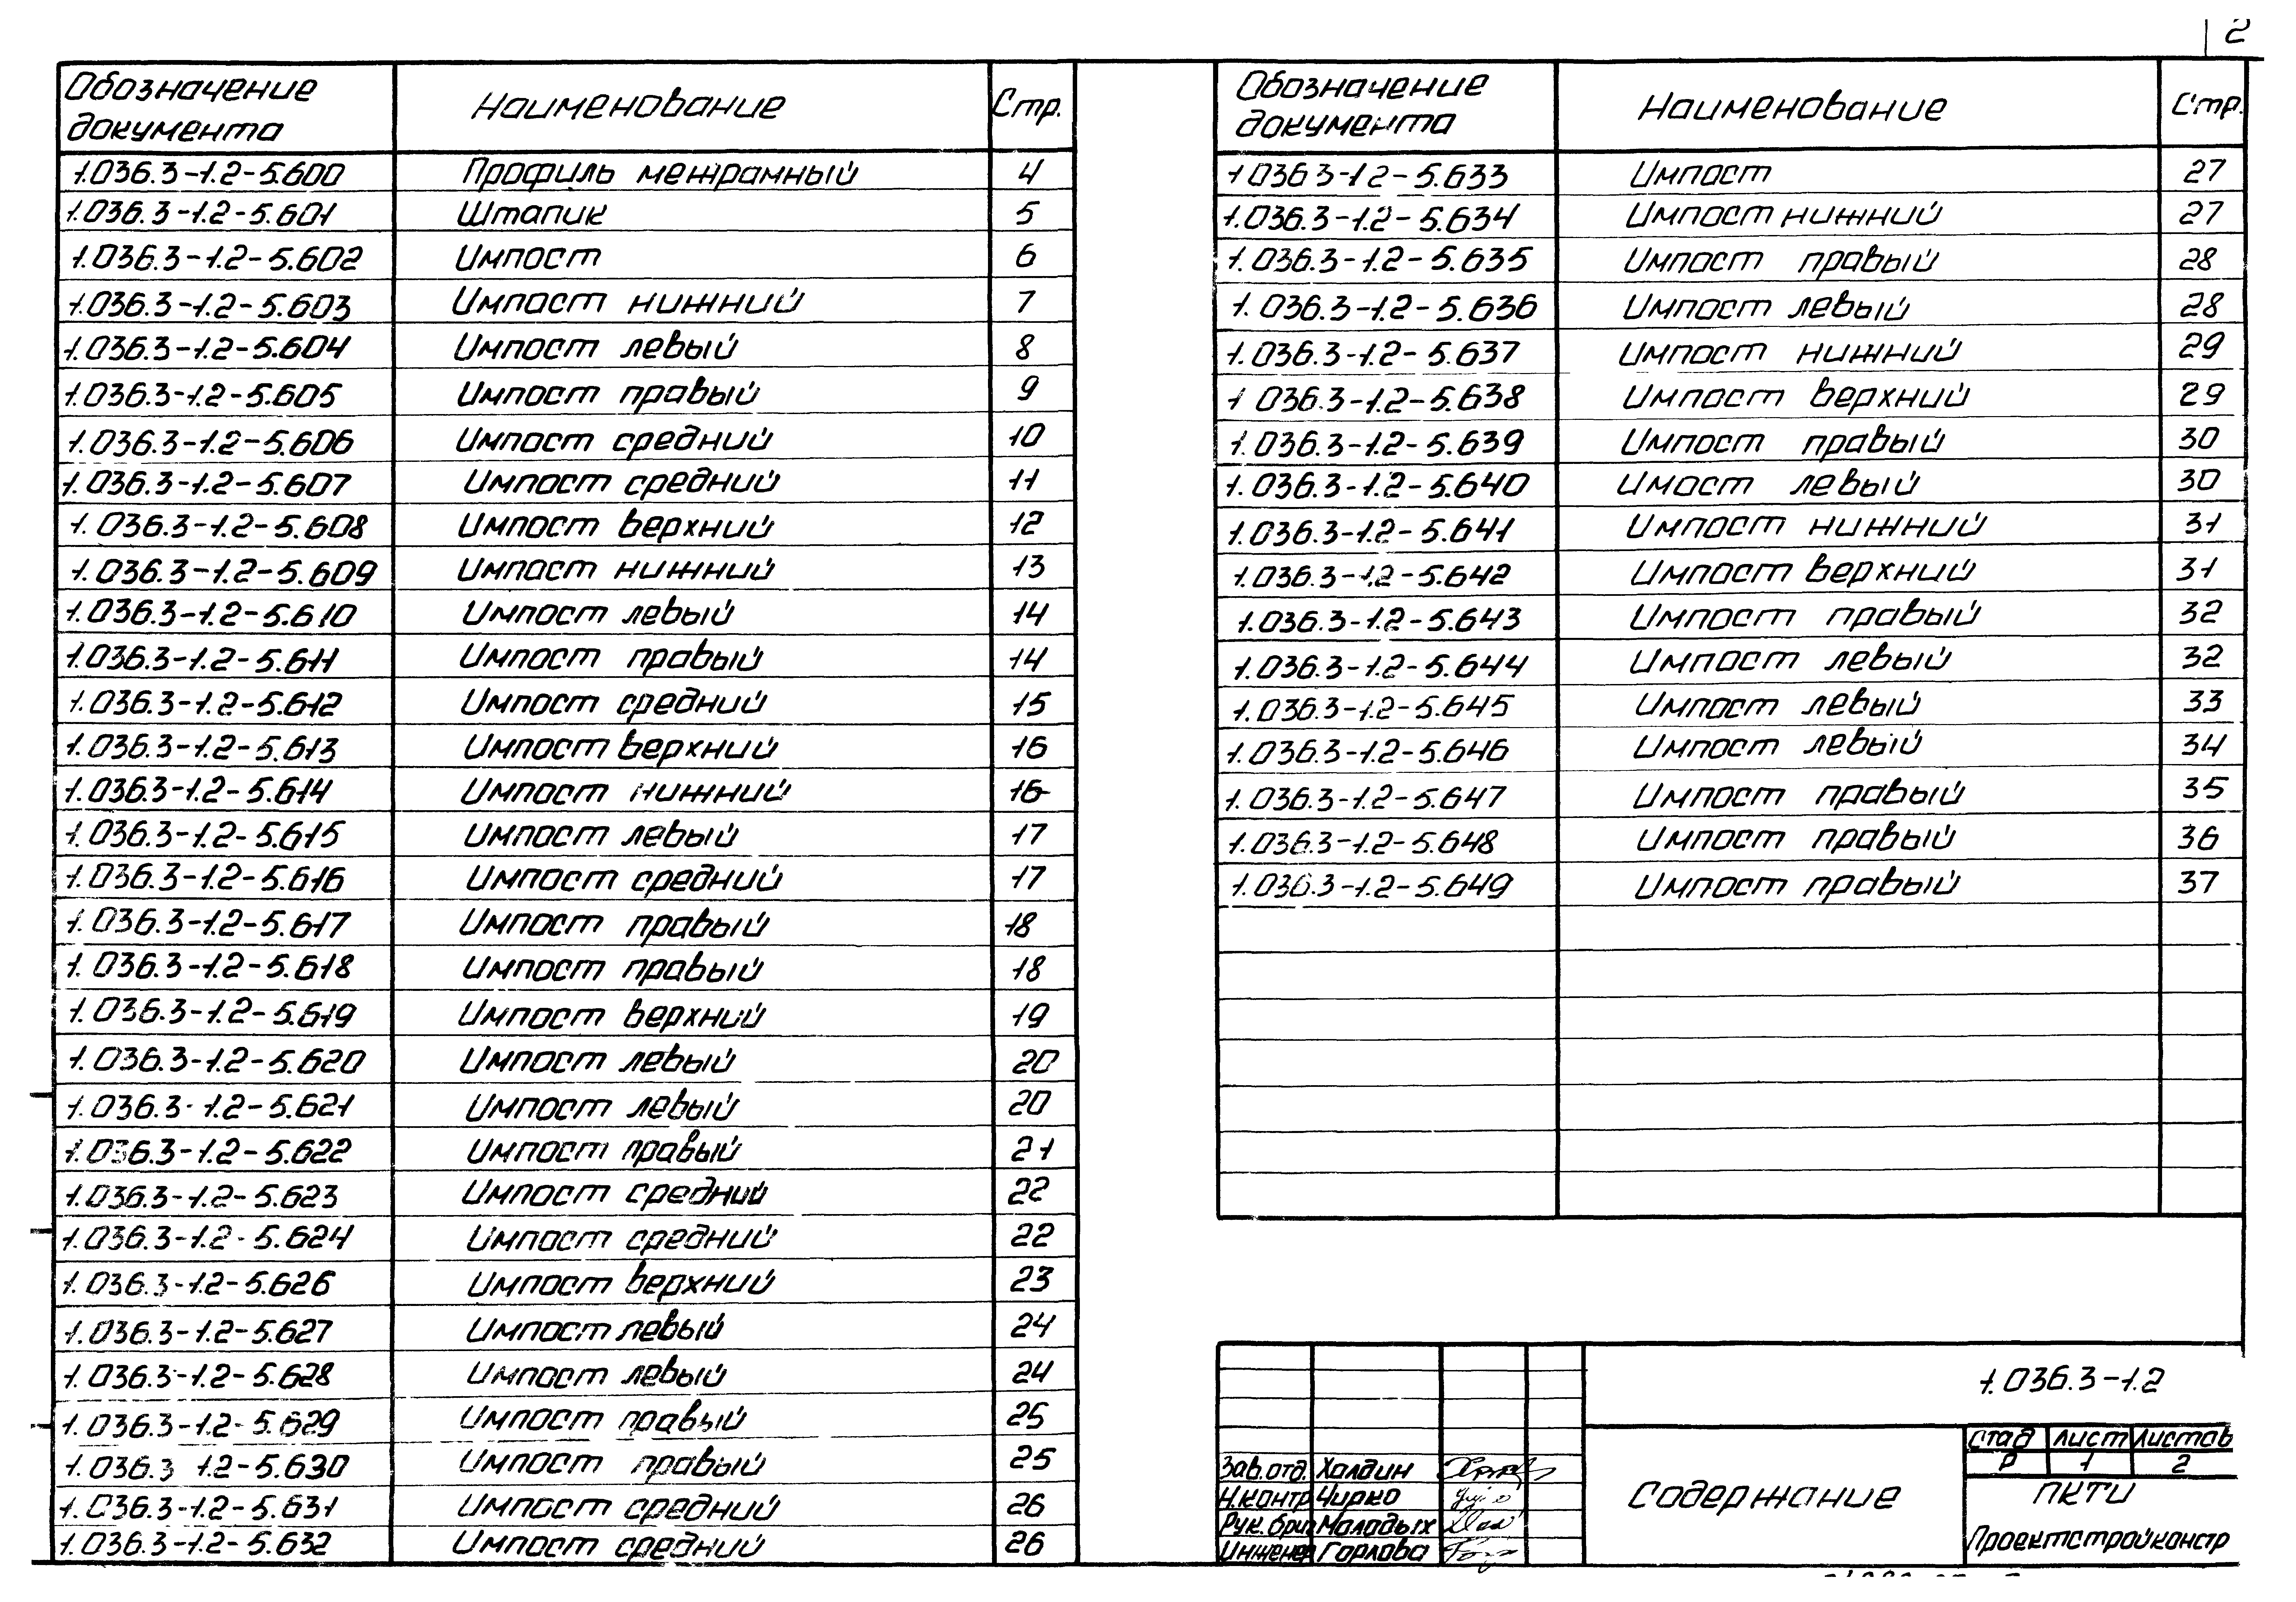 2
Обозначение документа Наименование Стр.
1.036.3-1.2-5.600 Профиль межрамный 4
1.036.3-1.2-5.601 Штапик 5
1.036.3-1.2-5.602 Импост 6
1.036.3-1.2-5.603 Импост нижний 7
1.036.3-1.2-5.604 Импост левый 8
1.036.3-1.2-5.605 Импост правый 9
1.036.3-1.2-5.606 Импост средний 10
1.036.3-1.2-5.607 Импост средний 11
1.036.3-1.2-5.608 Импост верхний 12
1.036.3-1.2-5.609 Импост нижний 13
1.036.3-1.2-5.610 Импост левый 14
1.036.3-1.2-5.611 Импост правый 14
1.036.3-1.2-5.612 Импост средний 15
1.036.3-1.2-5.613 Импост верхний 16
1.036.3-1.2-5.614 Импост нижний 16
1.036.3-1.2-5.615 Импост левый 17
1.036.3-1.2-5.616 Импост средний 17
1.036.3-1.2-5.617 Импост правый 18
1.036.3-1.2-5.618 Импост правый 18
1.036.3-1.2-5.619 Импост верхний 19
1.036.3-1.2-5.620 Импост левый 20
1.036.3-1.2-5.621 Импост левый 20
1.036.3-1.2-5.622 Импост правый 21
1.036.3-1.2-5.623 Импост средний 22
1.036.3-1.2-5.624 Импост средний 22
1.036.3-1.2-5.626 Импост верхний 23
1.036.3-1.2-5.627 Импост левый 24
1.036.3-1.2-5.628 Импост левый 24
1.036.3-1.2-5.629 Импост правый 25
1.036.3 1.2-5.630 Импост правый 25
1.036.3-1.2-5.631 Импост средний 26
1.036.3-1.2-5.632 Импост средний 26
Обозначение документа Наименование Стр.
1 036 3-1 2-5.633 Импост 27
1.036.3-1.2-5.634 Импост нижний 27
1.036.3-1.2-5.635 Импост правый 28
1.036.3-1.2-5.636 Импост левый 28
1.036.3-1.2-5.637 Импост нижний 29
1 036.3-1.2-5.638 Импост верхний 29
1.036.3-1.2-5.639 Импост правый 30
1.036.3-1.2-5.640 Имост левый 30
1.036.3-1.2-5.641 Импост нижний 31
1.036.3-1.2-5.642 Импост верхний 31
1.036.3-1.2-5.643 Импост правый 32
1.036.3-1.2-5.644 Импост левый 32
1.036.3-1.2-5.645 Импост левый 33
1.036.3-1.2-5.646 Импост левый 34
1.036.3-1.2-5.647 Импост правый 35
1.036.3-1.2-5.648 Импост правый 36
1.036.3-1.2-5.649 Импост правый 37
1.036.3-1.2
Зав.отд. Халдин
Н.контр Чирко
Рук.бриг Молодых
Инженер Горлова
Содержание
Стад Лист Листов
Р 1 2
ПКТИ
Проектстройконстр